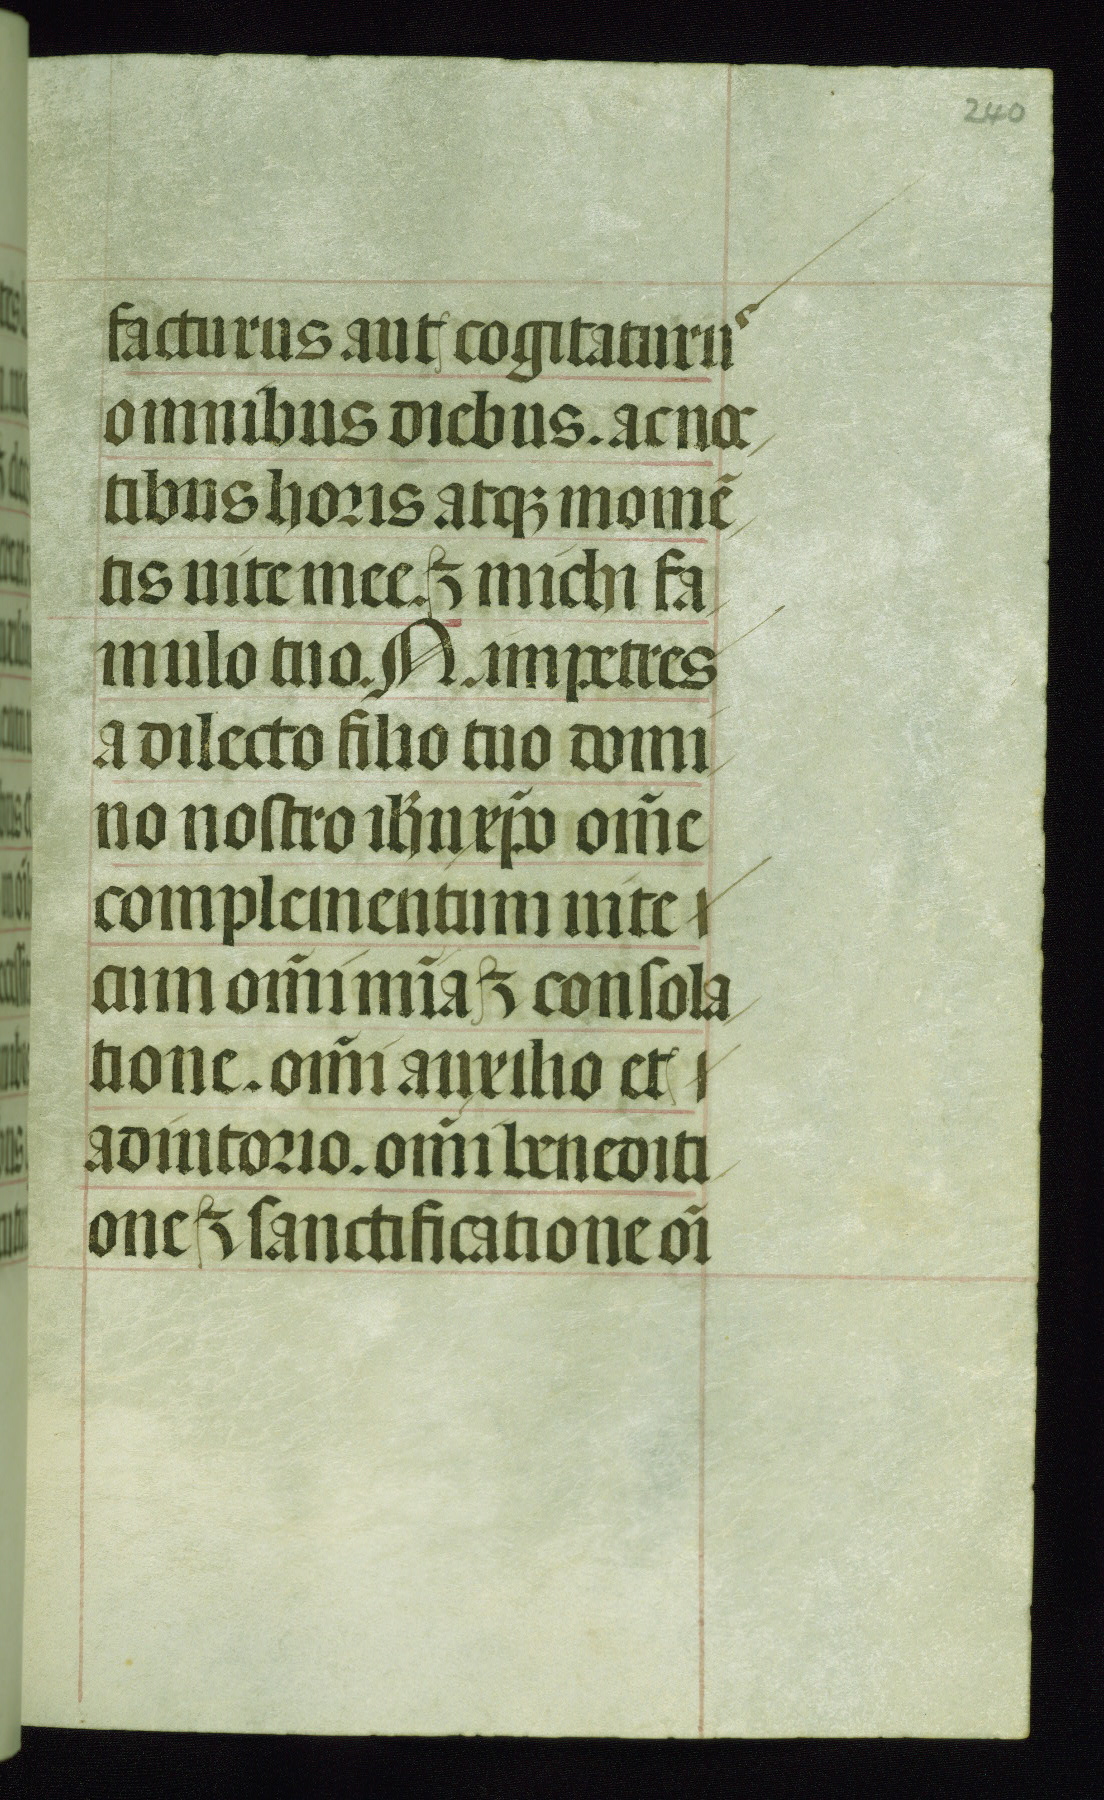 240
facturus aut cogitaturus
omnibus diebus. ac noc
tibus horis atqꝫ momē
tis uite mee. ⁊ michi fa
mulo tuo. N. impetres
a dilecto filio tuo domi
no nostro ihu xp̄o om̄e
complementum uite
cum om̄i mīa ⁊ consola
tione. om̄i auxilio et
adiutorio. om̄i benediti
one ⁊ sanctificatione oī